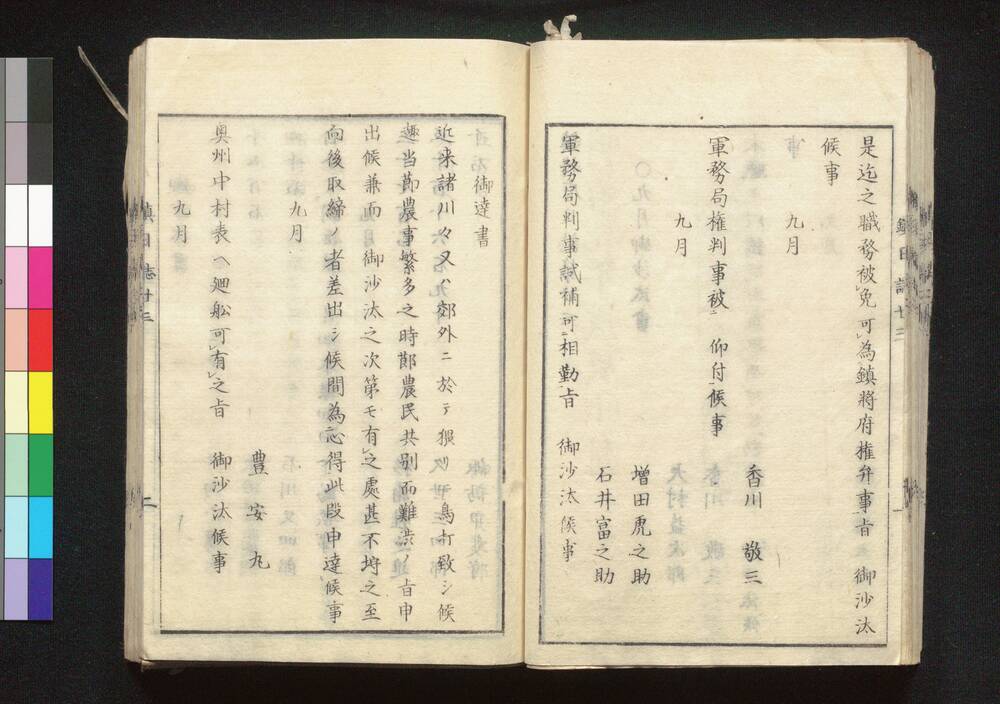 是迄之職務被免可為鎮將府権弁事旨　御沙汰
候事
九月
香川　敬三
軍務局権判事被　仰付候事
九月
増田虎之助
石井富之助
軍務局判事試補可相勤旨　御沙汰候事
御達書
近来諸川々又ハ郊外ニ於テ猥リニ鳥打致シ候
趣当節農事繁多之時節農民共別而難渋ノ旨申
出候兼而　御沙汰之次第モ有之處甚不埒之至
向後取締ノ者差出シ候間為心得此段申達候事
九月
豊安丸
奥州中村表ヘ廻舩可有之旨　御沙汰候事
九月
鎮日誌廿三
二